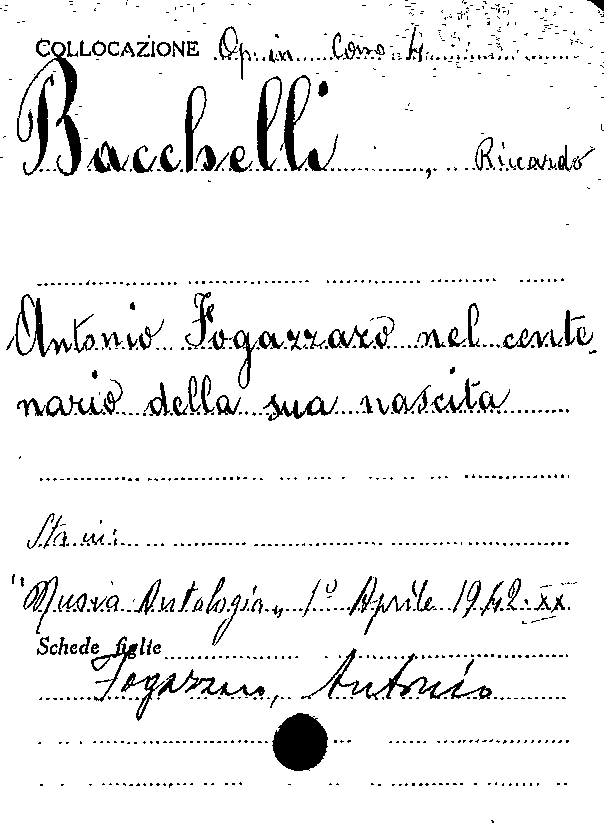 COLLOCAZIONE Op. in Cons 4
Bacchelli, Riccardo
Antonio Fogazzaro nel cente
nario della sua nascita
Sta in:
"Nuova Antologia„ 1° Aprile 1942-XX
Schede figlie
Fogazzaro, Antonio